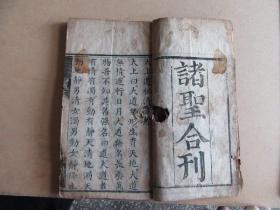 諸聖合刊
太上
太上曰大道無形生育天地大道
無情運行日月大道無名長養萬
物吾不知其名強名曰道夫道者
有清有濁有動有靜天清地濁天
動地靜男清女濁男動女靜降本